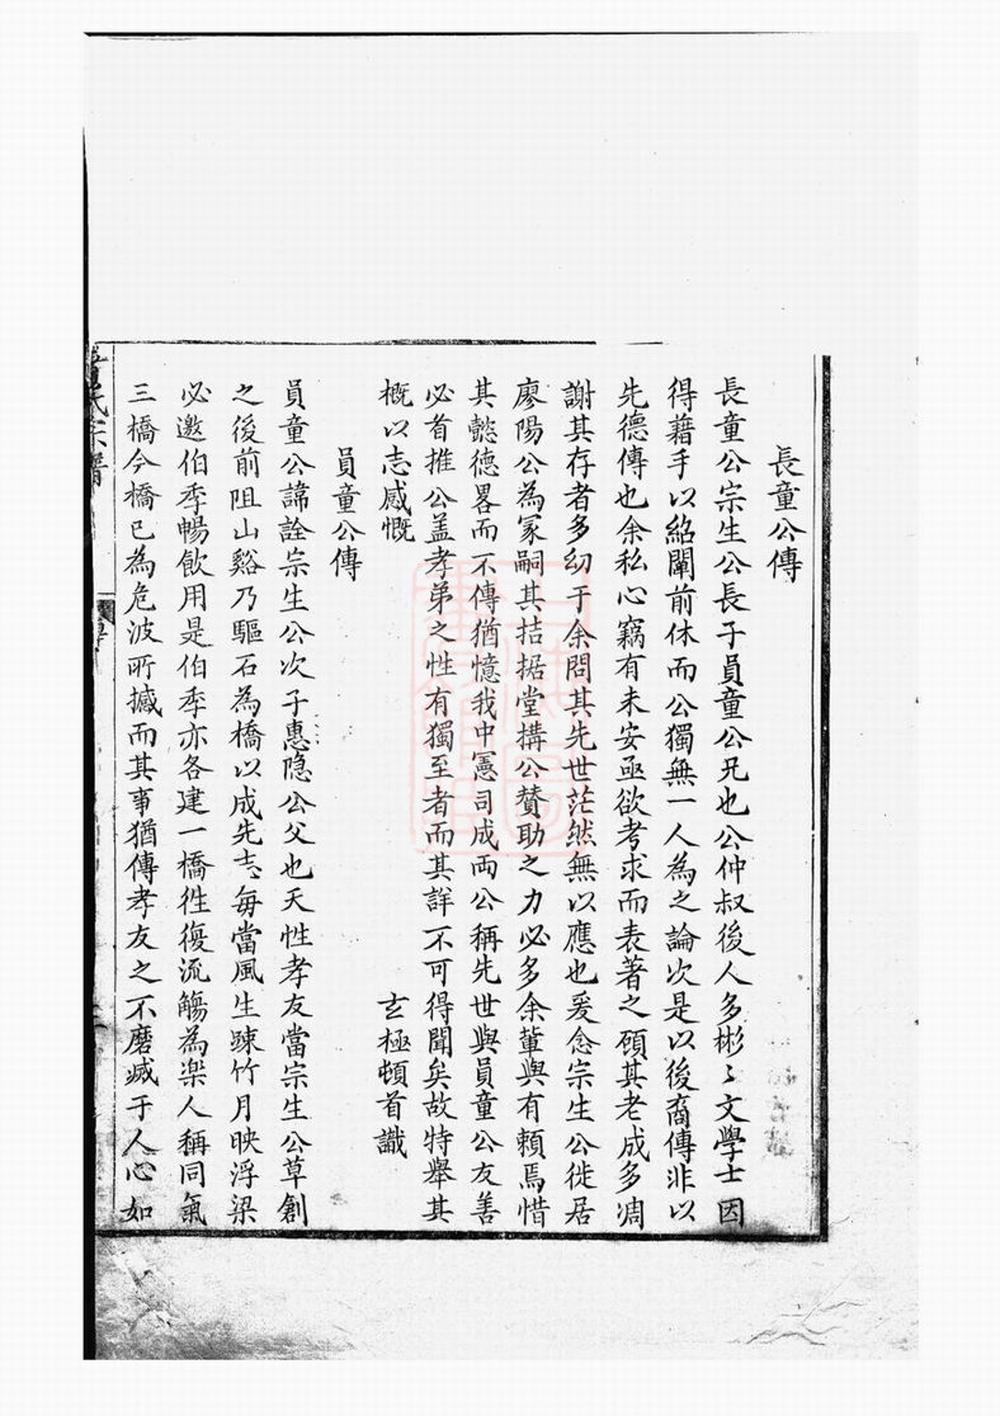 長童公傳
長童公宗生公長子員童公兄也公仲叔後人多彬〻文學士因
得藉手以紹闡前休而公獨無一人為之論次是以後裔傳非以
先德傳也余私心竊有未安亟欲考求而表著之顧其老成多凋
謝其存者多幼于余問其先世茫然無以應也爰念宗生公徙居
廖陽公為冢嗣其拮据堂搆公賛助之力必多余輩與有賴焉惜
其懿德畧而不傳猶憶我中憲司成両公稱先世與員童公友善
必首推公盖孝弟之性有獨至者而其詳不可得聞矣故特舉其
概以志感慨　玄極頓首識
員童公傳
員童公諱詮宗生公次子惠隐公父也天性孝友當宗生公草創
之後前阻山谿乃驅石為橋以成先志每當風生踈竹月映浮梁
必邀伯季暢飲用是伯季亦各建一橋徃復流觴為楽人稱同氣
三橋今橋已為危波所撼而其事猶傳孝友之不磨滅于人心如
氏宗譜